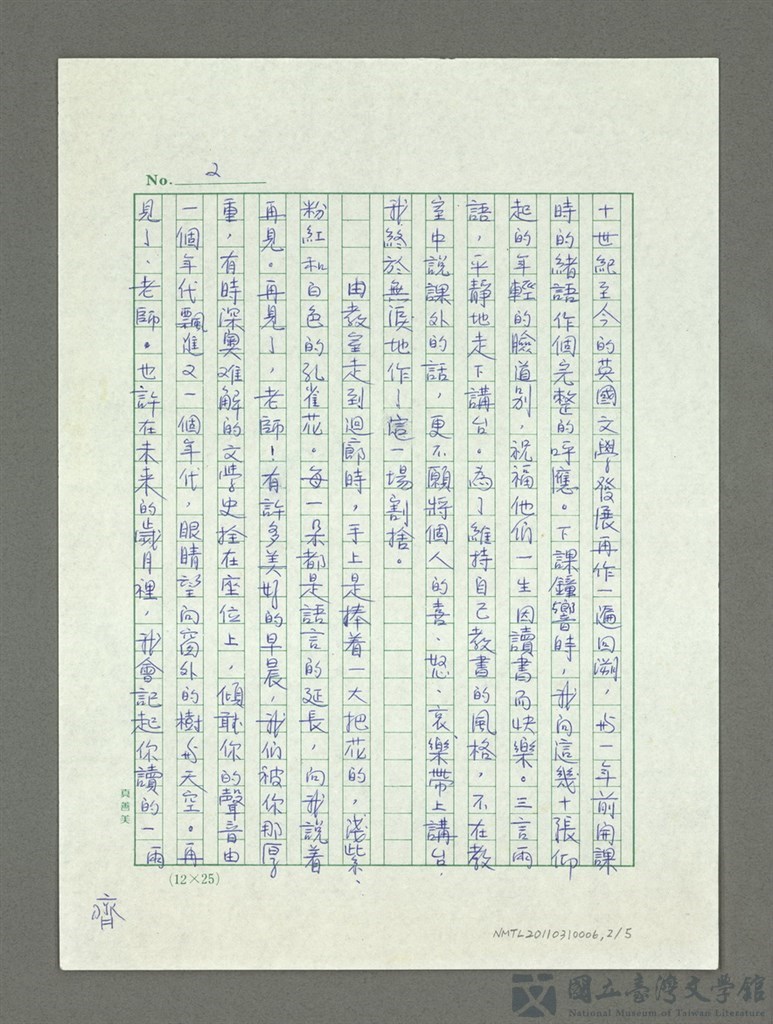 No. 2
十世紀至今的英國文學發展再作一遍回溯，與一年前開課
時的緒語作個完整的呼應。下課鐘響時，我向這幾十張仰
起的年輕的臉道別，祝福他們一生因讀書而快樂。三言兩
語，平靜地走下講台。為了維持自己教書的風格，不在教
室中說課外的話，更不願將個人的喜、怒、哀樂帶上講台，
我終於無淚地作了這一場割捨。
由教室走到迴廊時，手上是捧着一大把花的，淺紫、
粉紅和白色的孔雀花。每一朵都是語言的延長，向我說着
再見。再見了，老師！有許多美好的早晨，我們被你那厚
重，有時深奧难解的文學史拴在座位上，傾聽你的聲音由
一個年代飄進又一個年代，眼睛望向窗外的樹與天空。再
見了、老師。也許在未來的歲月裡，我會記起你讀的一兩
真善美
(12×25)
齊
NMTL20110310006,2/5
國立臺灣文學館
National Museum of Taiwan Literature